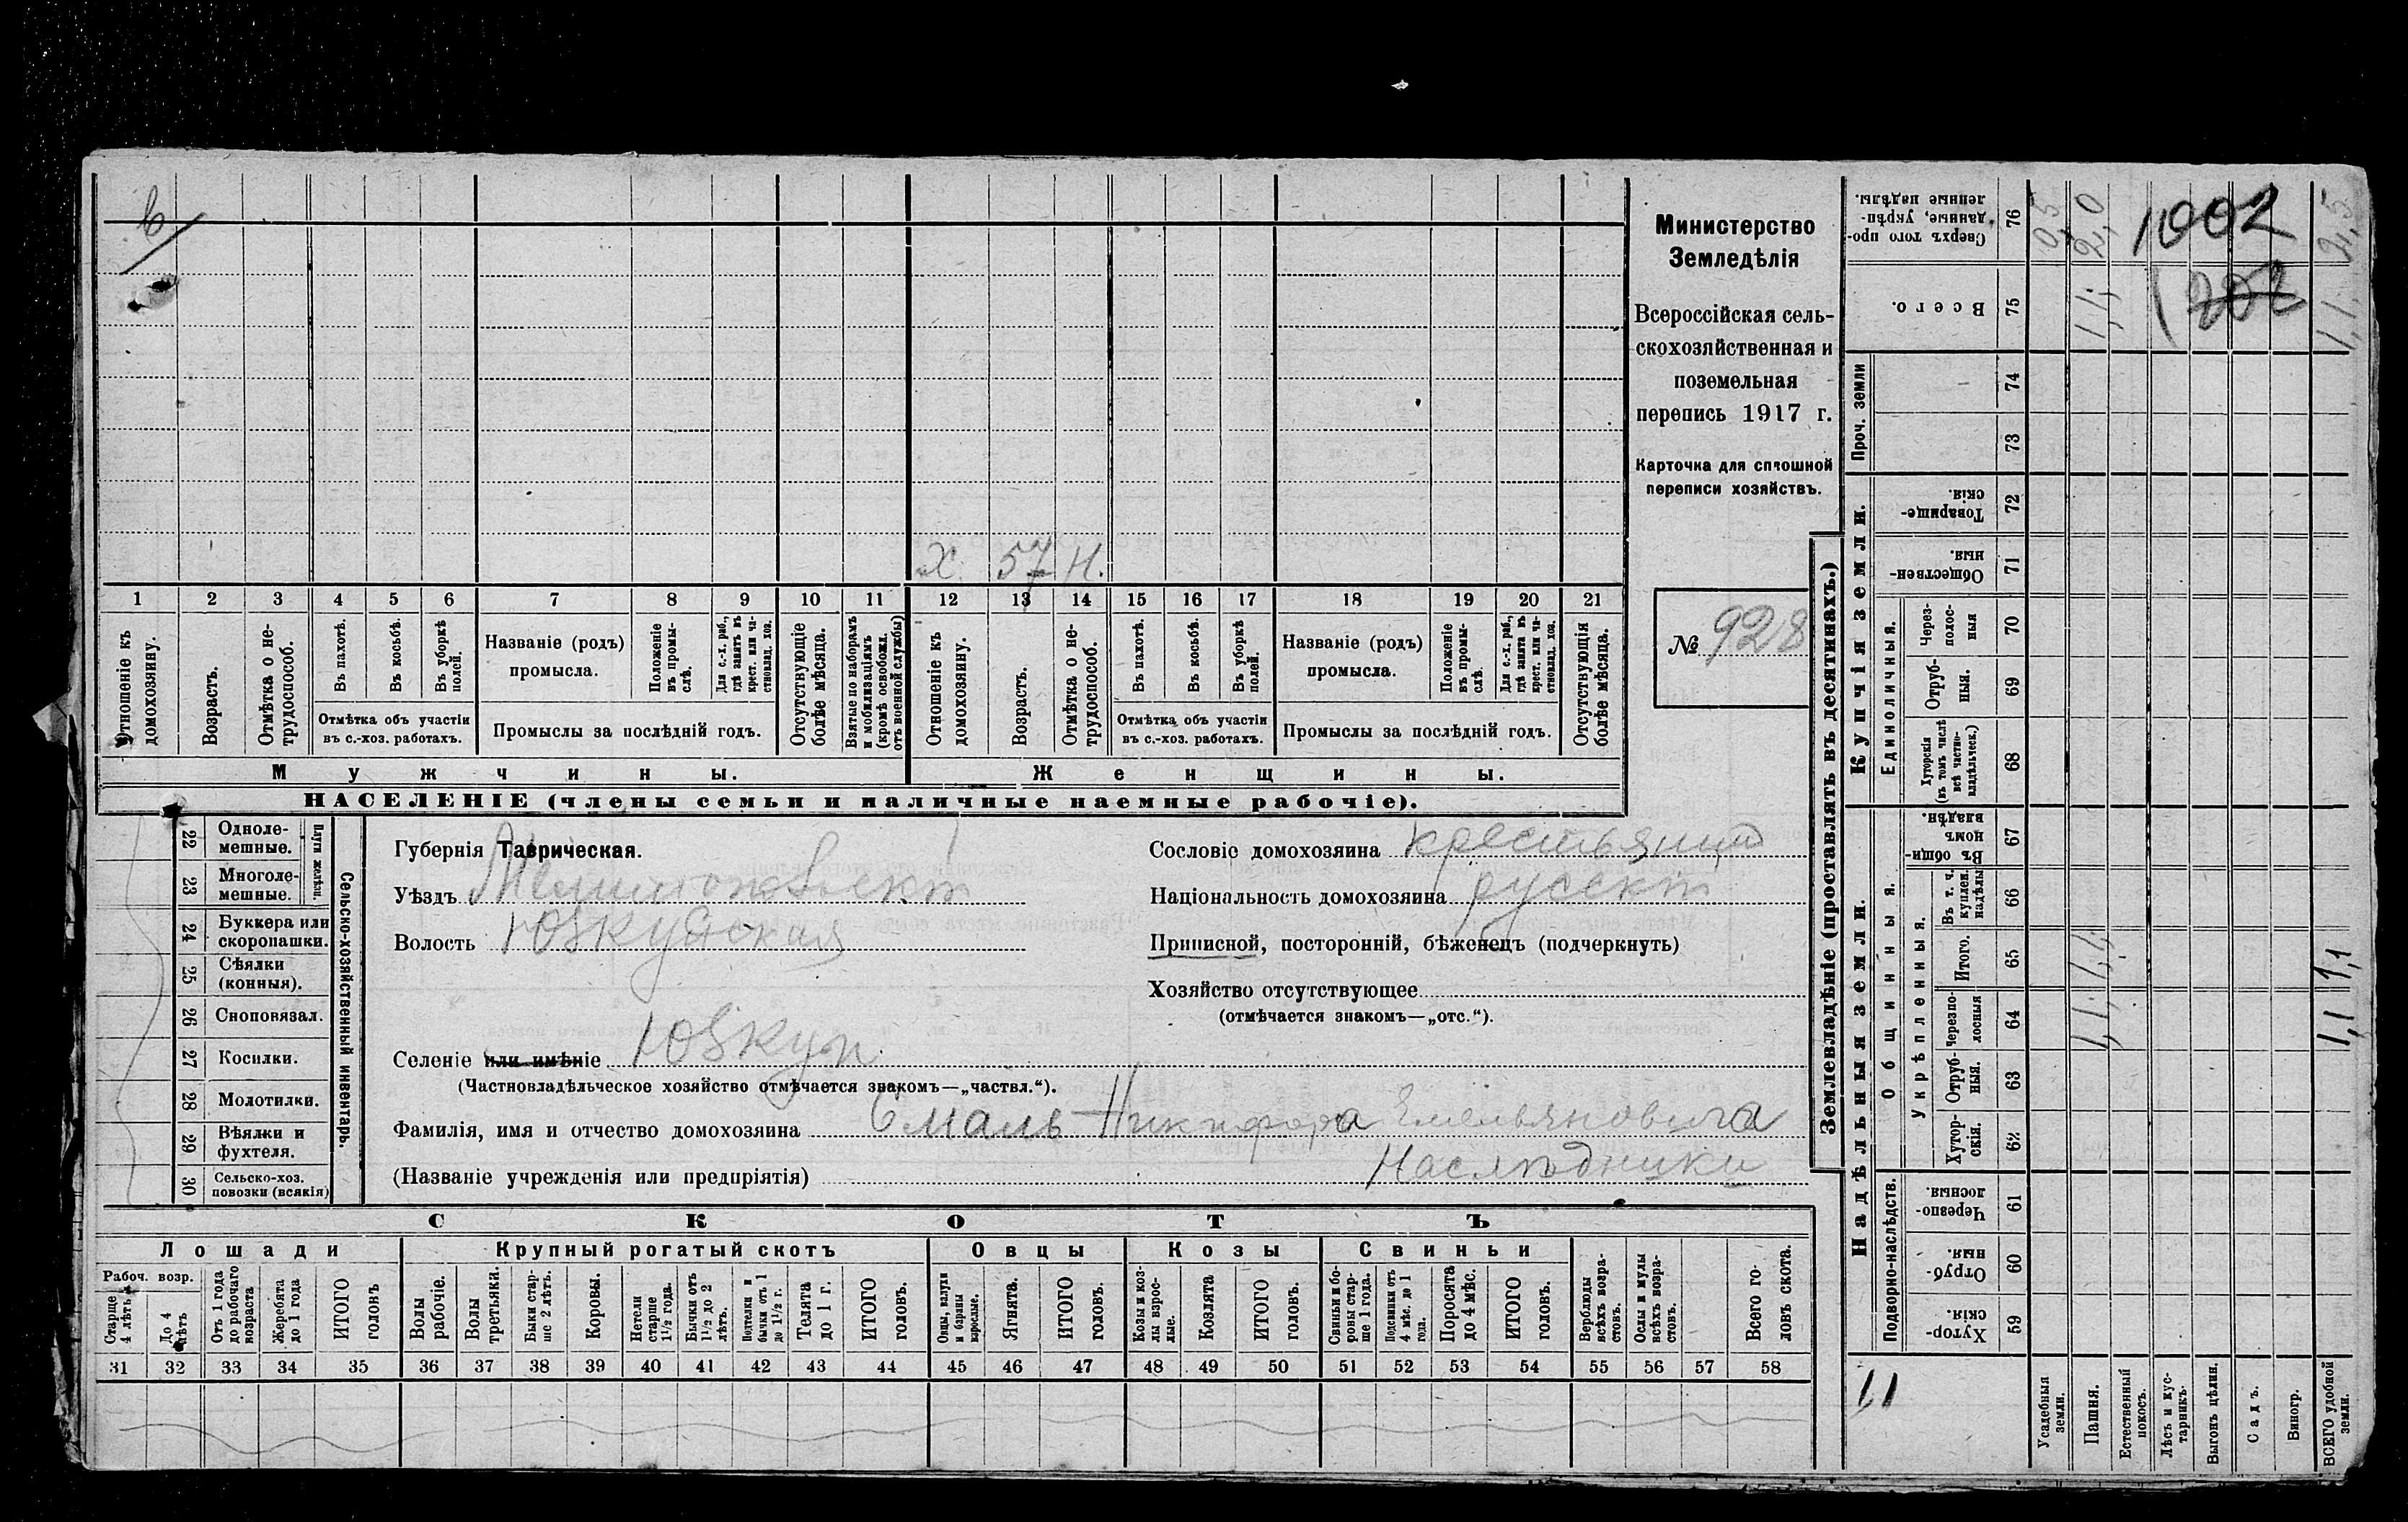 6
Министерство
Земледѣлія
Всероссійская сель-
скохозяйственная и
поземельная
перепись 1917 г.
Карточка для сплошной
переписи хозяйствъ.
№ 928
х 57 н.
1 2 3 4 5 6 7 8 9 10 11 12 13 14 15 16 17 18 19 20 21
Отношеніе къ домохозяину.
Возрастъ.
Отмѣтка о не-трудоспособ.
Въ пахотѣ.
Въ косьбѣ.
Въ уборкѣ полей.
Отмѣтка объ участіи
въ с.-хоз. работахъ.
Названіе (родъ)
промысла.
Положеніе въ промы-слѣ.
Для с.-х. раб., гдѣ занятъ въ крест. или ча-стновлад. хоз.
Промыслы за послѣдній годъ.
Отсутствующіе болѣе мѣсяца.
Взятые по наборамъ и мобилизаціямъ (кромѣ освобожд. отъ военной службы)
Отношеніе къ домохозяину.
Возрастъ.
Отмѣтка о не-трудоспособ.
Въ пахотѣ.
Въ косьбѣ.
Въ уборкѣ полей.
Отмѣтка объ участіи
въ с.-хоз. работахъ.
Названіе (родъ)
промысла.
Положеніе въ промы-слѣ.
Для с.-х. раб., гдѣ занятъ въ крест. или ча-стновлад. хоз.
Промыслы за послѣдній годъ.
Отсутствующія болѣе мѣсяца.
Мужчины. Женщины.
НАСЕЛЕНІЕ (члены семьи и наличные наемные рабочіе).
22 Однолемешные.
23 Многолемешные.
Плуги желѣзн.
24 Буккера или скоропашки.
25 Сѣялки (конныя).
26 Сноповязал.
27 Косилки.
28 Молотилки.
29 Вѣялки и фухтеля.
30 Сельско-хоз. повозки (всякія)
Сельско-хозяйственный инвентарь.
Губернія Таврическая.
Уѣздъ Мелитопольскій
Волость Юзкуйская
Селеніе или имѣніе Юзкуи
(Частновладѣльческое хозяйство отмѣчается знакомъ—„частвл.“).
Фамилія, имя и отчество домохозяина Смаль Никифора Емельяновича
(Названіе учрежденія или предпріятія) Наслѣдники
Сословіе домохозяина крестьянинъ
Національность домохозяина русскій
Приписной, посторонній, бѣженецъ (подчеркнуть)
Хозяйство отсутствующее
(отмѣчается знакомъ—„отс.“).
СКОТЪ
Лошади Крупный рогатый скотъ Овцы Козы Свиньи
Рабоч. возр.
Старше 4 лѣтъ
До 4 лѣтъ
Отъ 1 года до рабочаго возраста
Жеребята до 1 года
ИТОГО головъ
Волы рабочіе.
Волы третьяки.
Быки стар-ше 2 лѣтъ.
Коровы.
Нетели старше 1½ года.
Бычки отъ 1½ до 2 лѣтъ.
Подтелки и бычки отъ 1 до 1½ г.
Телята до 1 г.
ИТОГО головъ.
Овцы, валухи и бараны взрослые.
Ягнята.
ИТОГО головъ.
Козы и коз-лы взрос-лые.
Козлята
ИТОГО головъ.
Свиньи и бо-ровы стар-ше 1 года.
Подсвинки отъ 4 мѣс. до 1 года.
Поросята до 4 мѣс.
ИТОГО головъ.
Верблюды всѣхъ возра-стовъ.
Ослы и мулы всѣхъ возра-стовъ.
Всего го-ловъ скота.
31 32 33 34 35 36 37 38 39 40 41 42 43 44 45 46 47 48 49 50 51 52 53 54 55 56 57 58
Землевладѣніе (проставлять въ десятинахъ.)
Надѣльныя земли. Купчія земли. Проч. земли
Подворно-наслѣдств.
Общинныя.
Укрѣпленныя.
Единоличныя.
59 Хутор-скія.
60 Отруб-ныя.
61 Черезпо-лосныя.
62 Хутор-скія.
63 Отруб-ныя.
64 Черезпо-лосныя
65 Итого.
66 Въ т. ч. куплен. надѣлы
67 Въ общин-номъ владѣн.
68 Хуторскія (въ томъ числѣ всѣ частно-владѣльческ.)
69 Отруб-ныя.
70 Через-полос-ныя
71 Обществен-ныя.
72 Товарище-скія.
73
74
75 Всего.
76 Сверхъ того про-данные, укрѣп-ленные надѣлы.
Усадебныя земли.
Пашня.
Естественный покосъ.
Лѣсъ и кус-тарникъ.
Выгонъ цѣлин.
Садъ.
Виногр.
ВСЕГО удобной земли.
0,5
2,0
2,5
1002
202
1,1
1,1
1,1
1,1
1,1
1,1
11